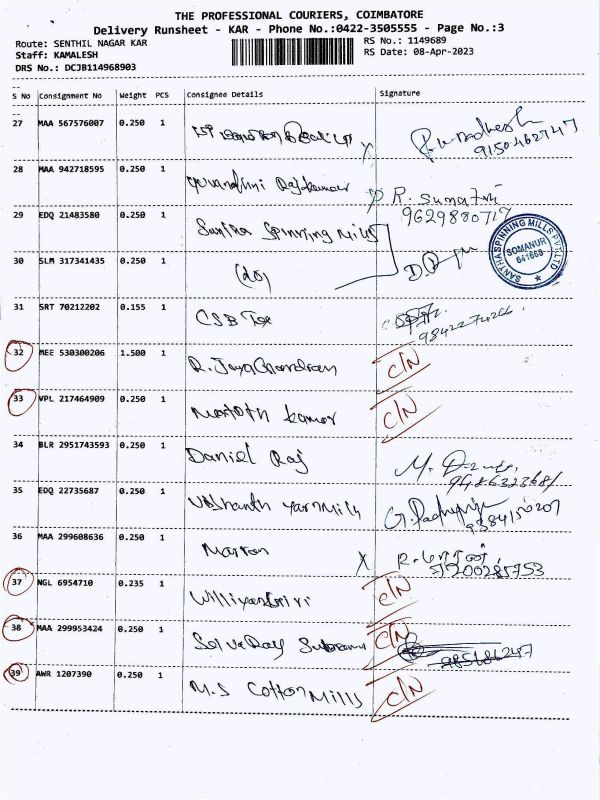 THE PROFESSIONAL COURIERS, COIMBATORE
Delivery Runsheet - KAR - Phone No.:0422-3505555 - Page No.:3
Route: SENTHIL NAGAR KAR RS No.: 1149689
Staff: KAMALESH RS Date: 08-Apr-2023
DRS No.: DCJB114968903
S No Consignment No Weight PCS Consignee Details Signature
27 MAA 567576007 0.250 1
9150462747
28 MAA 942718595 0.250 1 Rajkumar R. Sumathi
9629880717
29 EDQ 21483580 0.250 1 Spinning Mills
SANTHA SPINNING MILLS PVT LTD
SOMANUR
641668
30 SLM 317341435 0.250 1
31 SRT 70212202 0.155 1 CSB
32 MEE 530300206 1.500 1 R. JayaChandran C/N
33 VPL 217464909 0.250 1 kumar C/N
34 BLR 2951743593 0.250 1 Daniel Raj M.
35 EDQ 22735687 0.250 1 Yarn Mills G.
9384150207
36 MAA 299608636 0.250 1 X R.
37 NGL 6954710 0.235 1 C/N
38 MAA 299953424 0.250 1 C/N
39 AWR 1207390 0.250 1 M.S Cotton Mills C/N